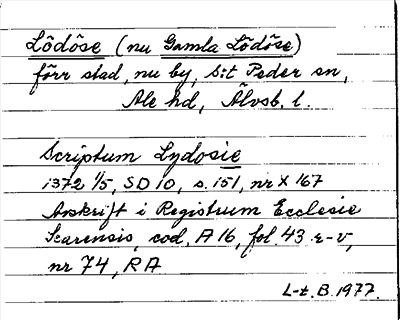 Lödöse (nu Gamla Lödöse)
förr stad, nu by, S:t Peder sn,
Ale hd, Älvsb. l.
Scriptum Lydosie
1372 1/5, SD 10, s. 151, nr X 167
Avskrift i Registrum Ecclesie
Scarensis, cod. A 16, fol. 43 r-v,
nr 74, RA
L-t. B. 1977.